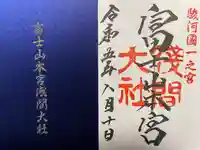 富士山本宮浅間大社
駿河國一之宮
富士山本宮
浅間
大社
令和五年八月十日